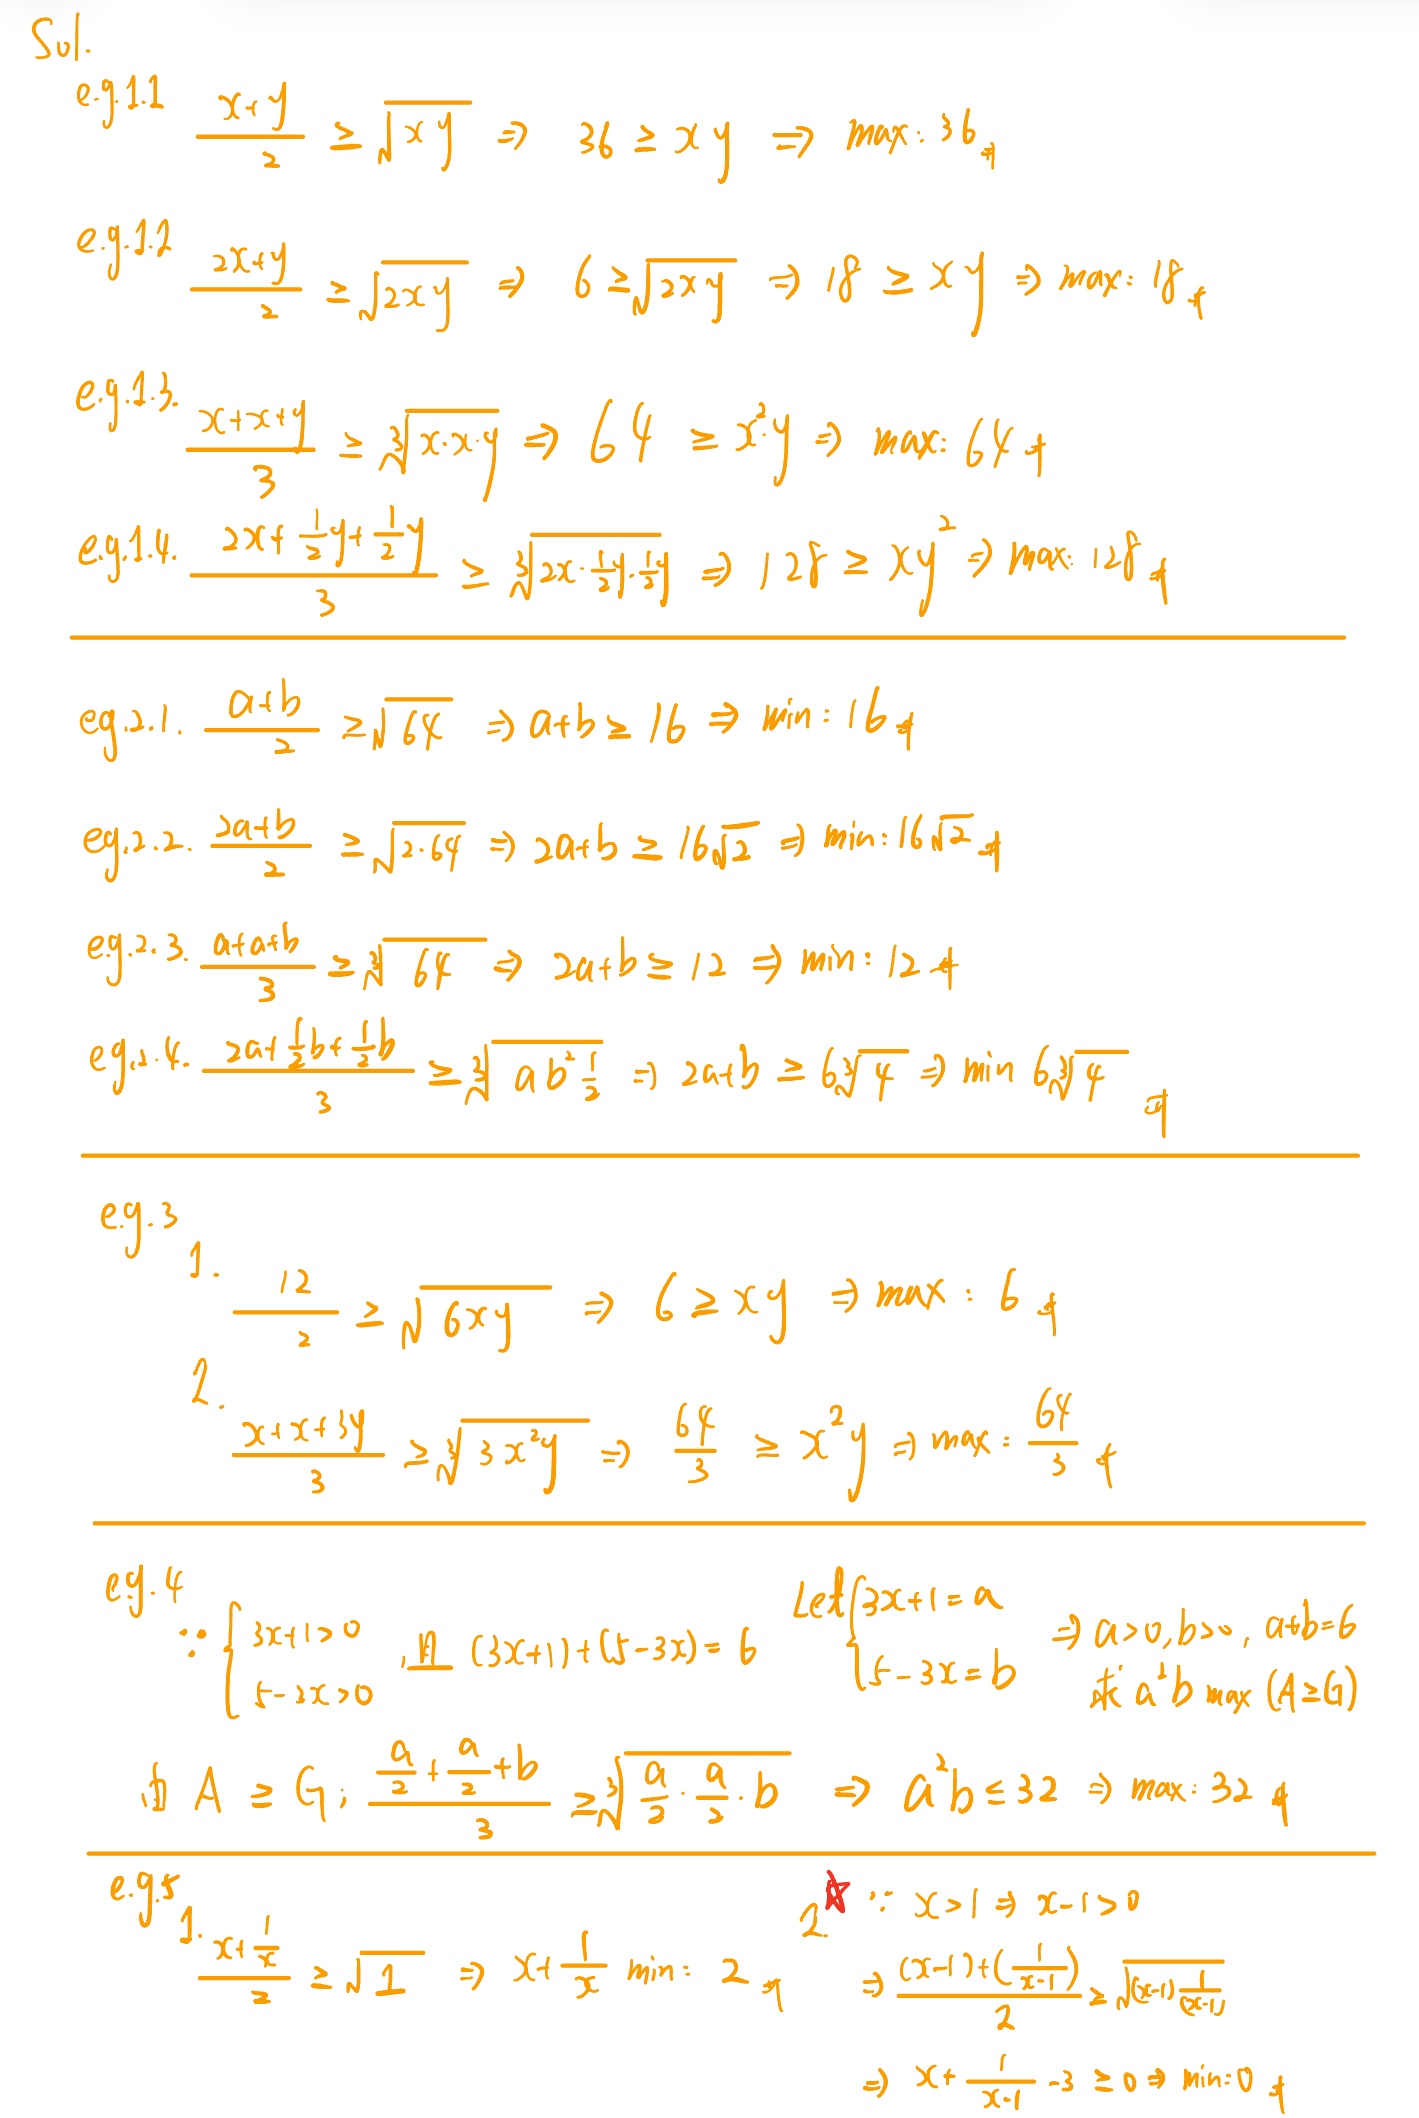 Sol.
e.g.1.1 (x+y)/2 ≥ √(xy) ⇒ 36 ≥ xy ⇒ max: 36
e.g.1.2 (2x+y)/2 ≥ √(2xy) ⇒ 6 ≥ √(2xy) ⇒ 18 ≥ xy ⇒ max: 18
e.g.1.3. (x+x+y)/3 ≥ ∛(x·x·y) ⇒ 64 ≥ x²·y ⇒ max: 64
e.g.1.4. (2x+½y+½y)/3 ≥ ∛(2x·½y·½y) ⇒ 128 ≥ xy² ⇒ max: 128
eg.2.1. (a+b)/2 ≥ √64 ⇒ a+b ≥ 16 ⇒ min: 16
eg.2.2. (2a+b)/2 ≥ √(2·64) ⇒ 2a+b ≥ 16√2 ⇒ min: 16√2
e.g.2.3. (a+a+b)/3 ≥ ∛64 ⇒ 2a+b ≥ 12 ⇒ min: 12
eg.2.4. (2a+½b+½b)/3 ≥ ∛(ab²½) ⇒ 2a+b ≥ 6∛4 ⇒ min 6∛4
e.g.3
1. 12/2 ≥ √(6xy) ⇒ 6 ≥ xy ⇒ max: 6
2. (x+x+3y)/3 ≥ ∛(3x²y) ⇒ 64/3 ≥ x²y ⇒ max: 64/3
e.g.4
∵ { 3x+1>0 , 5-3x>0 , 且 (3x+1)+(5-3x)=6 Let { 3x+1=a , 5-3x=b ⇒ a>0, b>0, a+b=6
求 a²b max (A≥G)
由 A ≥ G; (a/2+a/2+b)/3 ≥ ∛(a/2·a/2·b) ⇒ a²b ≤ 32 ⇒ max: 32
e.g.5
1. (x+1/x)/2 ≥ √1 ⇒ x+1/x min: 2
2. ∵ x>1 ⇒ x-1>0
⇒ ((x-1)+(1/(x-1)))/2 ≥ √((x-1)1/(x-1))
⇒ x+1/(x-1) -3 ≥ 0 ⇒ min: 0